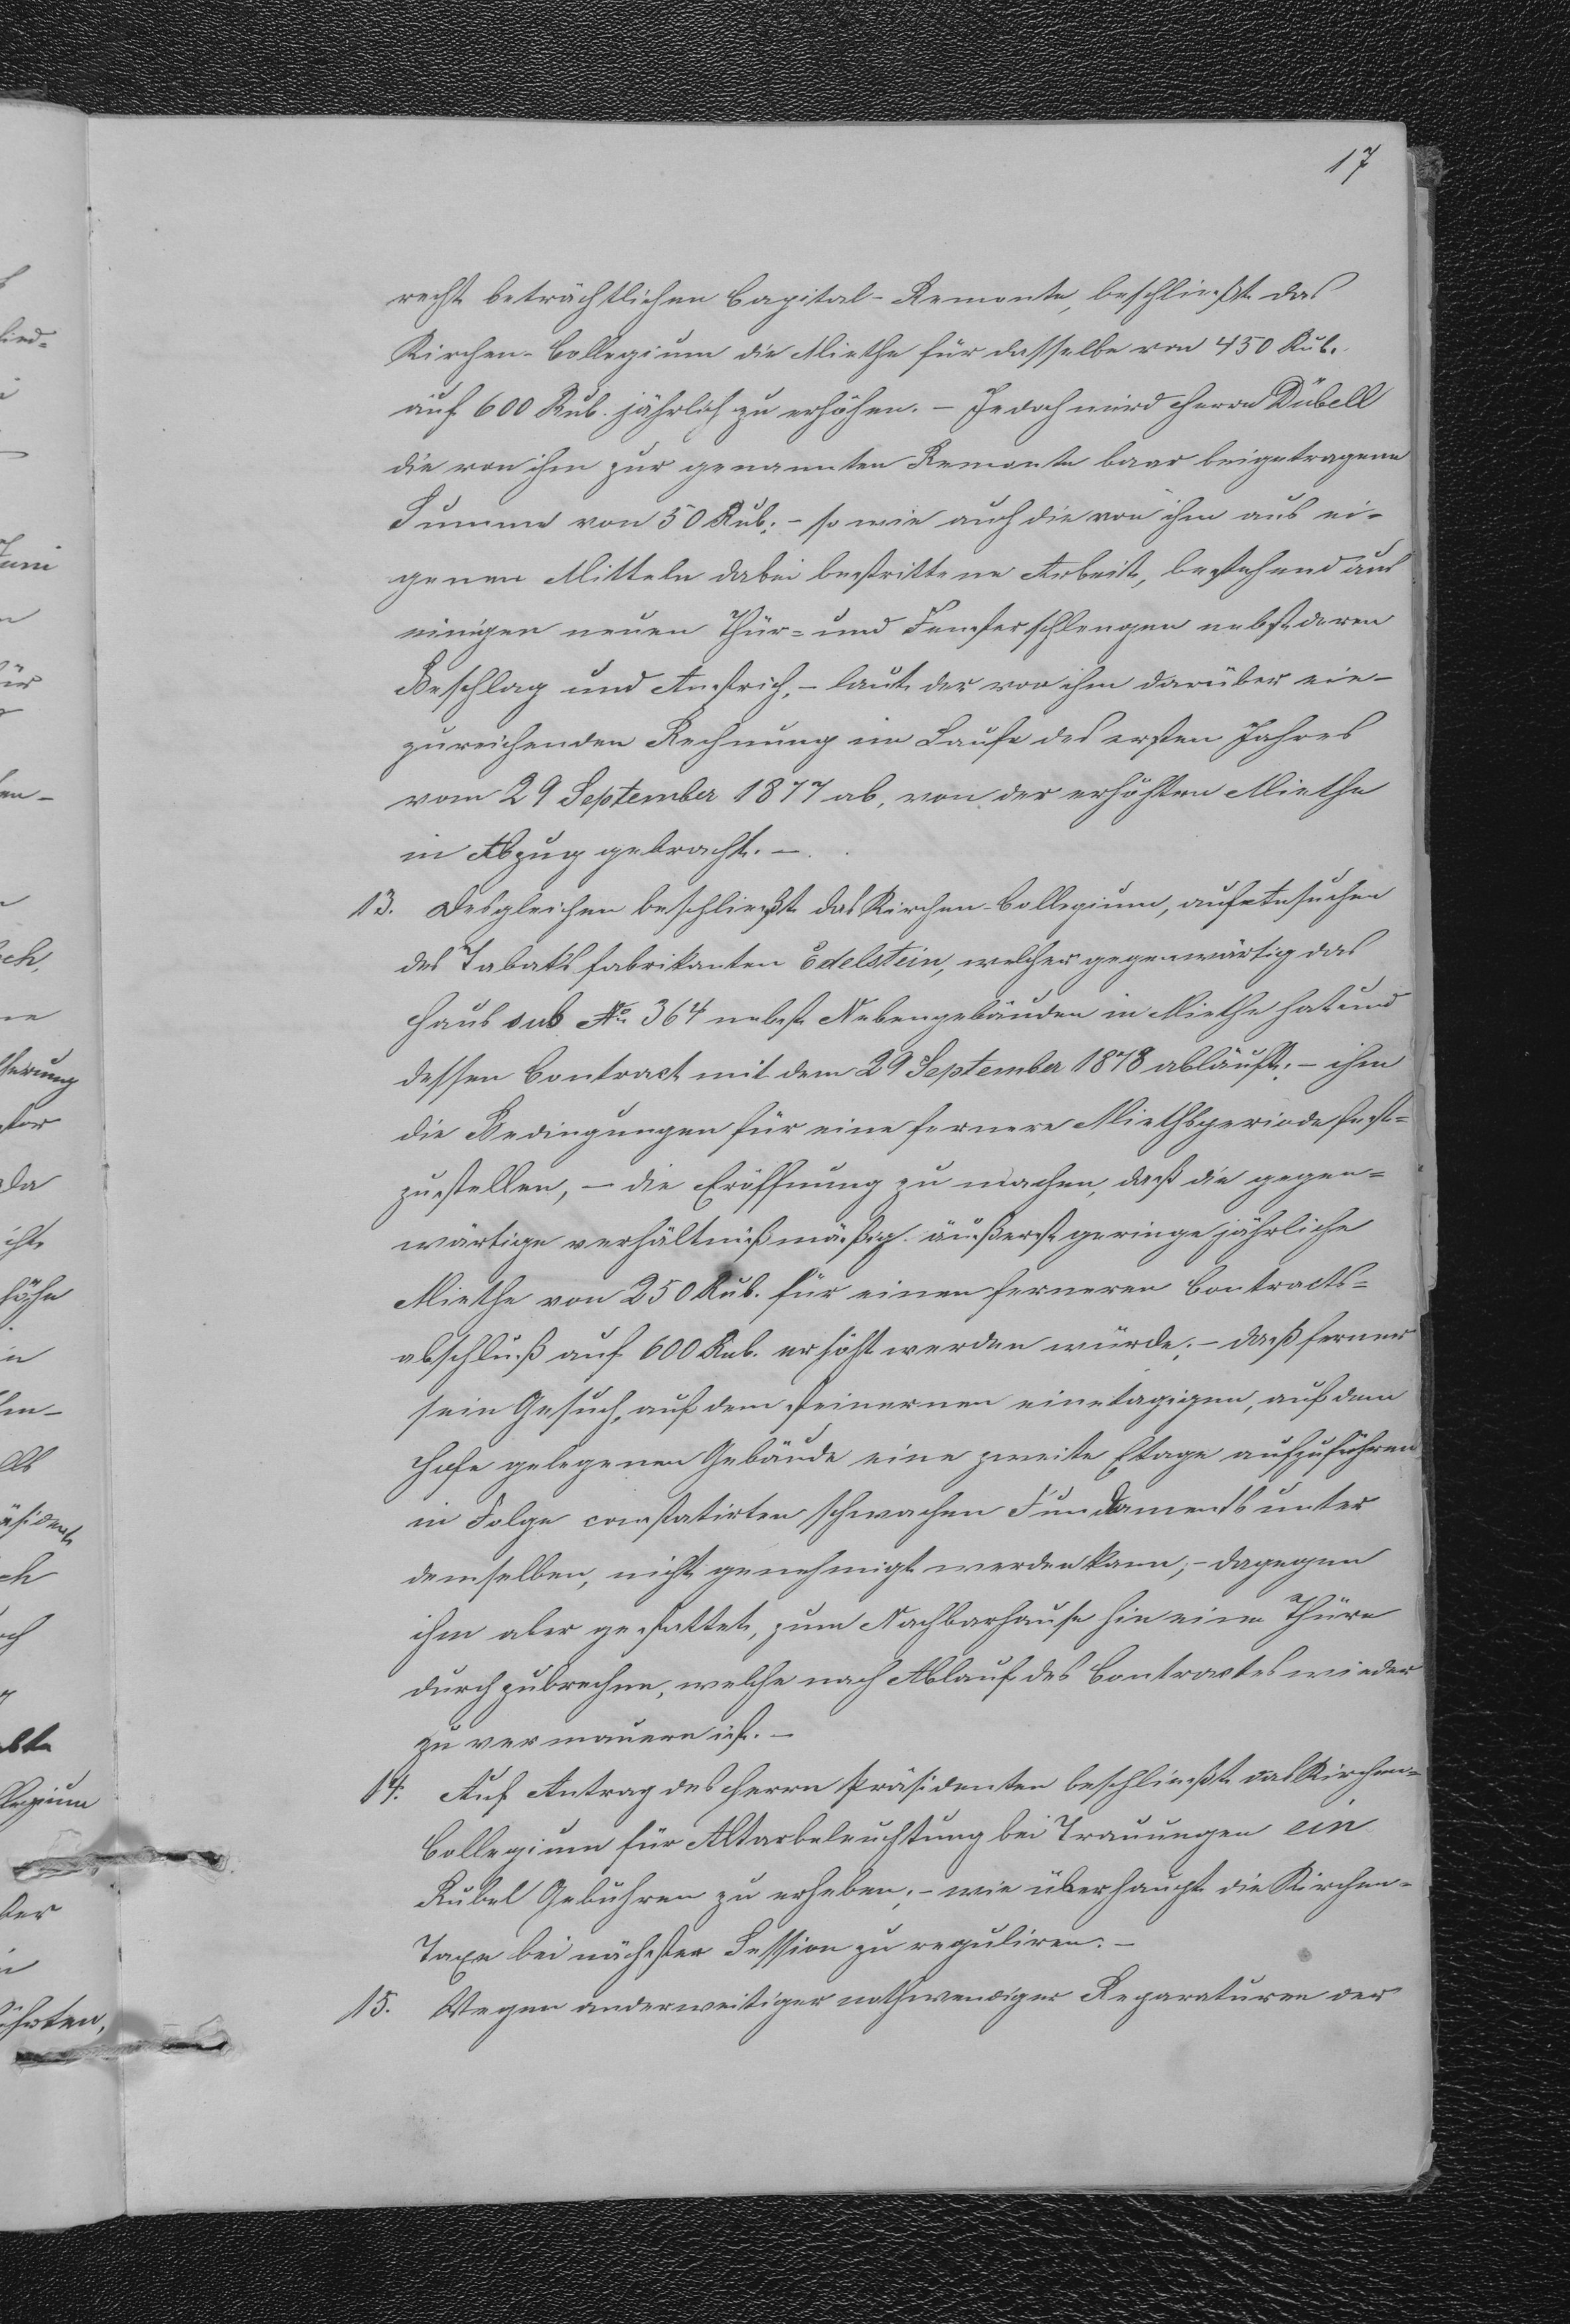 17
recht beträchtlichen Capital-Remonte, beschließt das
Kirchen-Collegium die Miethe für dasselbe von 450 Rub.
auf 600 Rub. jährlich zu erhöhen. – Jedoch wird Herrn Dübell
die von ihm zur genannten Remonte baar beigetragene
Summe von 50 Rub; – so wie auch die von ihm aus ei-
genen Mitteln dabei bestrittene Arbeit, bestehend aus
einigen neuen Thür- und Fensterschlengen nebst deren
Beschlag und Anstrich, – laut der von ihm darüber ein-
zureichenden Rechnung im Laufe des ersten Jahres
vom 29 September 1877 ab, von der erhöhten Miethe
in Abzug gebracht. –
13. Desgleichen beschließt das Kirchen-Collegium, auf Ansuchen
des Tabaksfabrikanten Edelstein, welcher gegenwärtig das
Haus sub No 364 nebst Nebengebäuden in Miethe hat und
dessen Contract mit dem 29 September 1878 abläuft; – ihm
die Bedingungen für eine fernere Miethsperiode fest=
zustellen, – die Eröffnung zu machen, daß die gegen=
wärtige verhältnißmäßig äußerst geringe jährliche
Miethe von 250 Rub. für einen ferneren Contracts=
abschluß auf 600 Rub. erhöht werden würde; – daß ferner
sein Gesuch, auf dem steinernen einetagigen, auf dem
Hofe gelegenen Gebäude eine zweite Etage aufzuführen
in Folge constatirten schwachen Fundaments unter
demselben, nicht genehmigt werden kann; – dagegen
ihm aber gestattet, zum Nachbarhause hin eine Thüre
durchzubrechen, welche nach Ablauf des Contractes wieder
zu vermauern ist. –
14. Auf Antrag des Herrn Präsidenten beschließt das Kirchen=
Collegium für Altarbeleuchtung bei Trauungen ein
Rubel Gebühren zu erheben; – wie überhaupt die Kirchen-
Taxe bei nächster Session zu reguliren. –
15. Wegen anderweitiger nothwendiger Reparaturen der